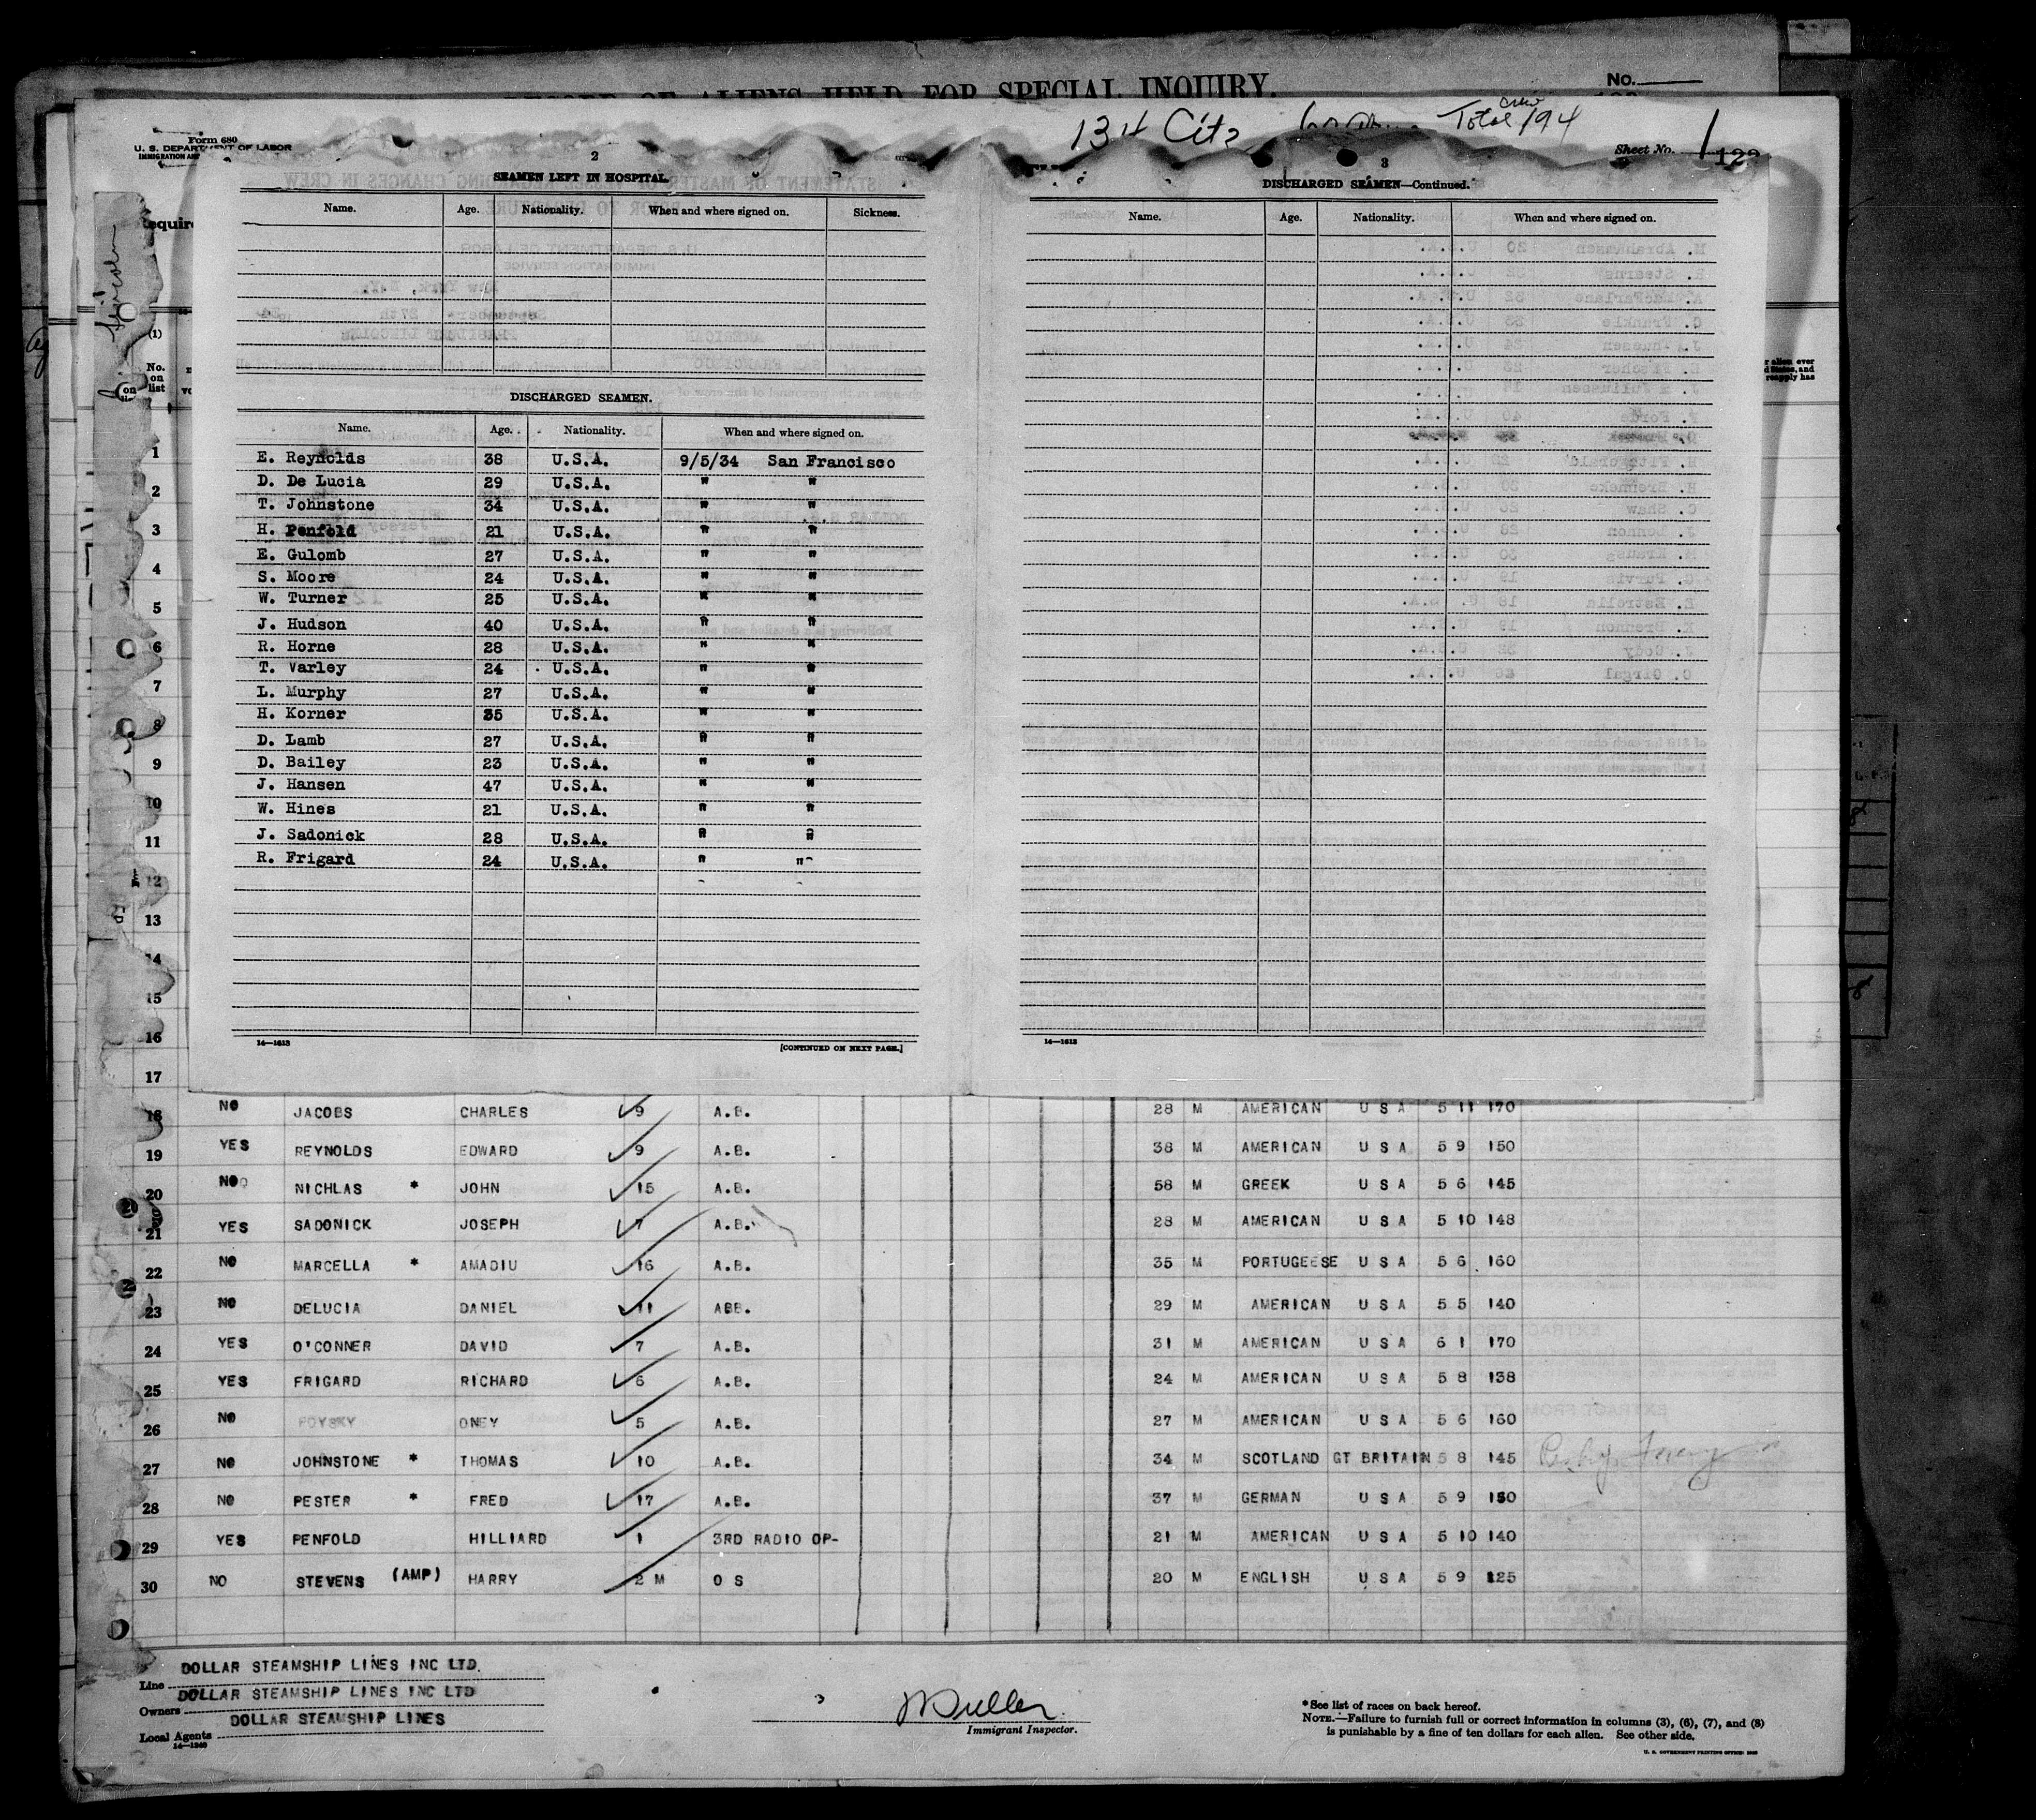 RECORD OF ALIENS HELD FOR SPECIAL INQUIRY.
No.
134 Citz Total crew 194
Form 680
U. S. DEPARTMENT OF LABOR
IMMIGRATION
Sheet No. 1
2
SEAMEN LEFT IN HOSPITAL
Name. Age. Nationality. When and where signed on. Sickness.
DISCHARGED SEAMEN.
Name. Age. Nationality. When and where signed on.
E. Reynolds 38 U.S.A. 9/5/34 San Francisco
D. De Lucia 29 U.S.A. " "
T. Johnstone 34 U.S.A. " "
H. Penfold 21 U.S.A. " "
E. Gulomb 27 U.S.A. " "
S. Moore 24 U.S.A. " "
W. Turner 25 U.S.A. " "
J. Hudson 40 U.S.A. " "
R. Horne 28 U.S.A. " "
T. Varley 24 U.S.A. " "
L. Murphy 27 U.S.A. " "
H. Korner 35 U.S.A. " "
D. Lamb 27 U.S.A. " "
D. Bailey 23 U.S.A. " "
J. Hansen 47 U.S.A. " "
W. Hines 21 U.S.A. " "
J. Sadonick 28 U.S.A. " "
R. Frigard 24 U.S.A. " "
14—1613 [CONTINUED ON NEXT PAGE.]
3
DISCHARGED SEAMEN—Continued.
Name. Age. Nationality. When and where signed on.
14—1613
(1)
No. on list
1
2
3
4
5
6
7
8
9
10
11
12
13
14
15
16
17
18 NO JACOBS CHARLES 9 A.B. 28 M AMERICAN U S A 5 11 170
19 YES REYNOLDS EDWARD 9 A.B. 38 M AMERICAN U S A 5 9 150
20 NO NICHLAS * JOHN 15 A.B. 58 M GREEK U S A 5 6 145
21 YES SADONICK JOSEPH 7 A.B. 28 M AMERICAN U S A 5 10 148
22 NO MARCELLA * AMADIU 16 A.B. 35 M PORTUGEESE U S A 5 6 160
23 NO DELUCIA DANIEL 11 ABB. 29 M AMERICAN U S A 5 5 140
24 YES O'CONNER DAVID 7 A.B. 31 M AMERICAN U S A 6 1 170
25 YES FRIGARD RICHARD 6 A.B. 24 M AMERICAN U S A 5 8 138
26 NO ONEY 5 A.B. 27 M AMERICAN U S A 5 6 160
27 NO JOHNSTONE * THOMAS 10 A.B. 34 M SCOTLAND GT BRITAIN 5 8 145
28 NO PESTER * FRED 17 A.B. 37 M GERMAN U S A 5 9 150
29 YES PENFOLD HILLIARD 1 3RD RADIO OP- 21 M AMERICAN U S A 5 10 140
30 NO STEVENS (AMP) HARRY 2 M O S 20 M ENGLISH U S A 5 9 125
Line DOLLAR STEAMSHIP LINES INC LTD.
Owners DOLLAR STEAMSHIP LINES INC LTD
Local Agents DOLLAR STEAMSHIP LINES
14—1240
Immigrant Inspector.
*See list of races on back hereof.
NOTE.—Failure to furnish full or correct information in columns (3), (6), (7), and (8)
is punishable by a fine of ten dollars for each alien. See other side.
U. S. GOVERNMENT PRINTING OFFICE